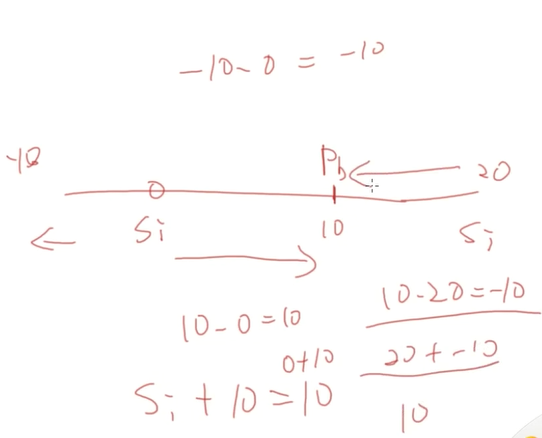 -10-0 = -10
-10
Pb
20
0
Si
10
Si
10-0=10
10-20=-10
0+10
20+-10
Si+10=10
10